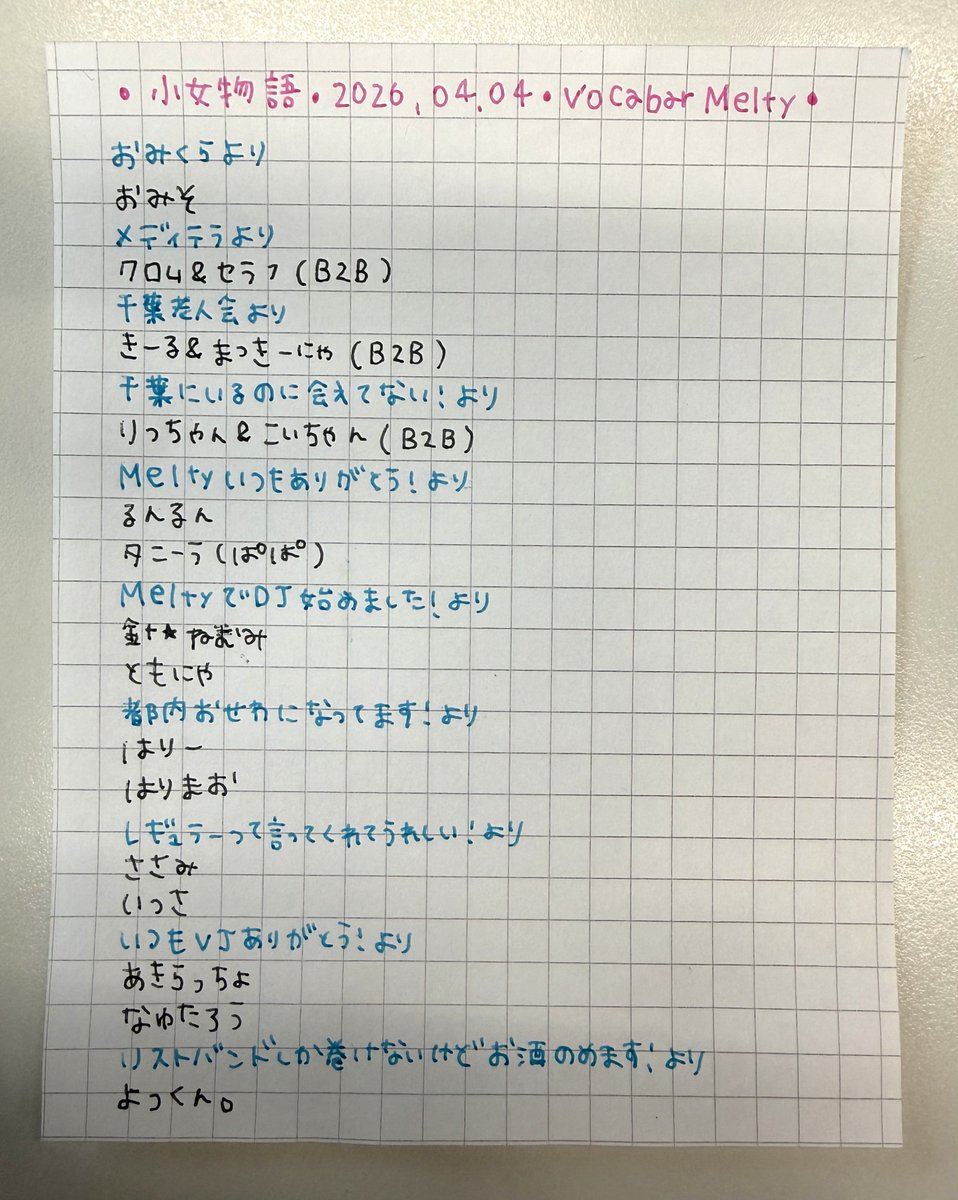 ・小女物語・2026.04.04・Vocabar Melty・
おみくらより
おみそ
メディテラより
クロム&セラフ(B2B)
千葉老人会より
きーる&まっきーにゃ(B2B)
千葉にいるのに会えてない!より
りっちゃん&こいちゃん(B2B)
Meltyいつもありがとう!より
るんるん
タニーラ(ぱぱ)
MeltyでDJ始めました!より
金十★ねむみ
ともにゃ
都内おせわになってます!より
はりー
はりまお
レギュラーって言ってくれてうれしい!より
ささみ
いっさ
いつもVJありがとう!より
あきらっちょ
なゆたろう
リストバンドしか巻けないけどお酒のめます!より
よっくん。